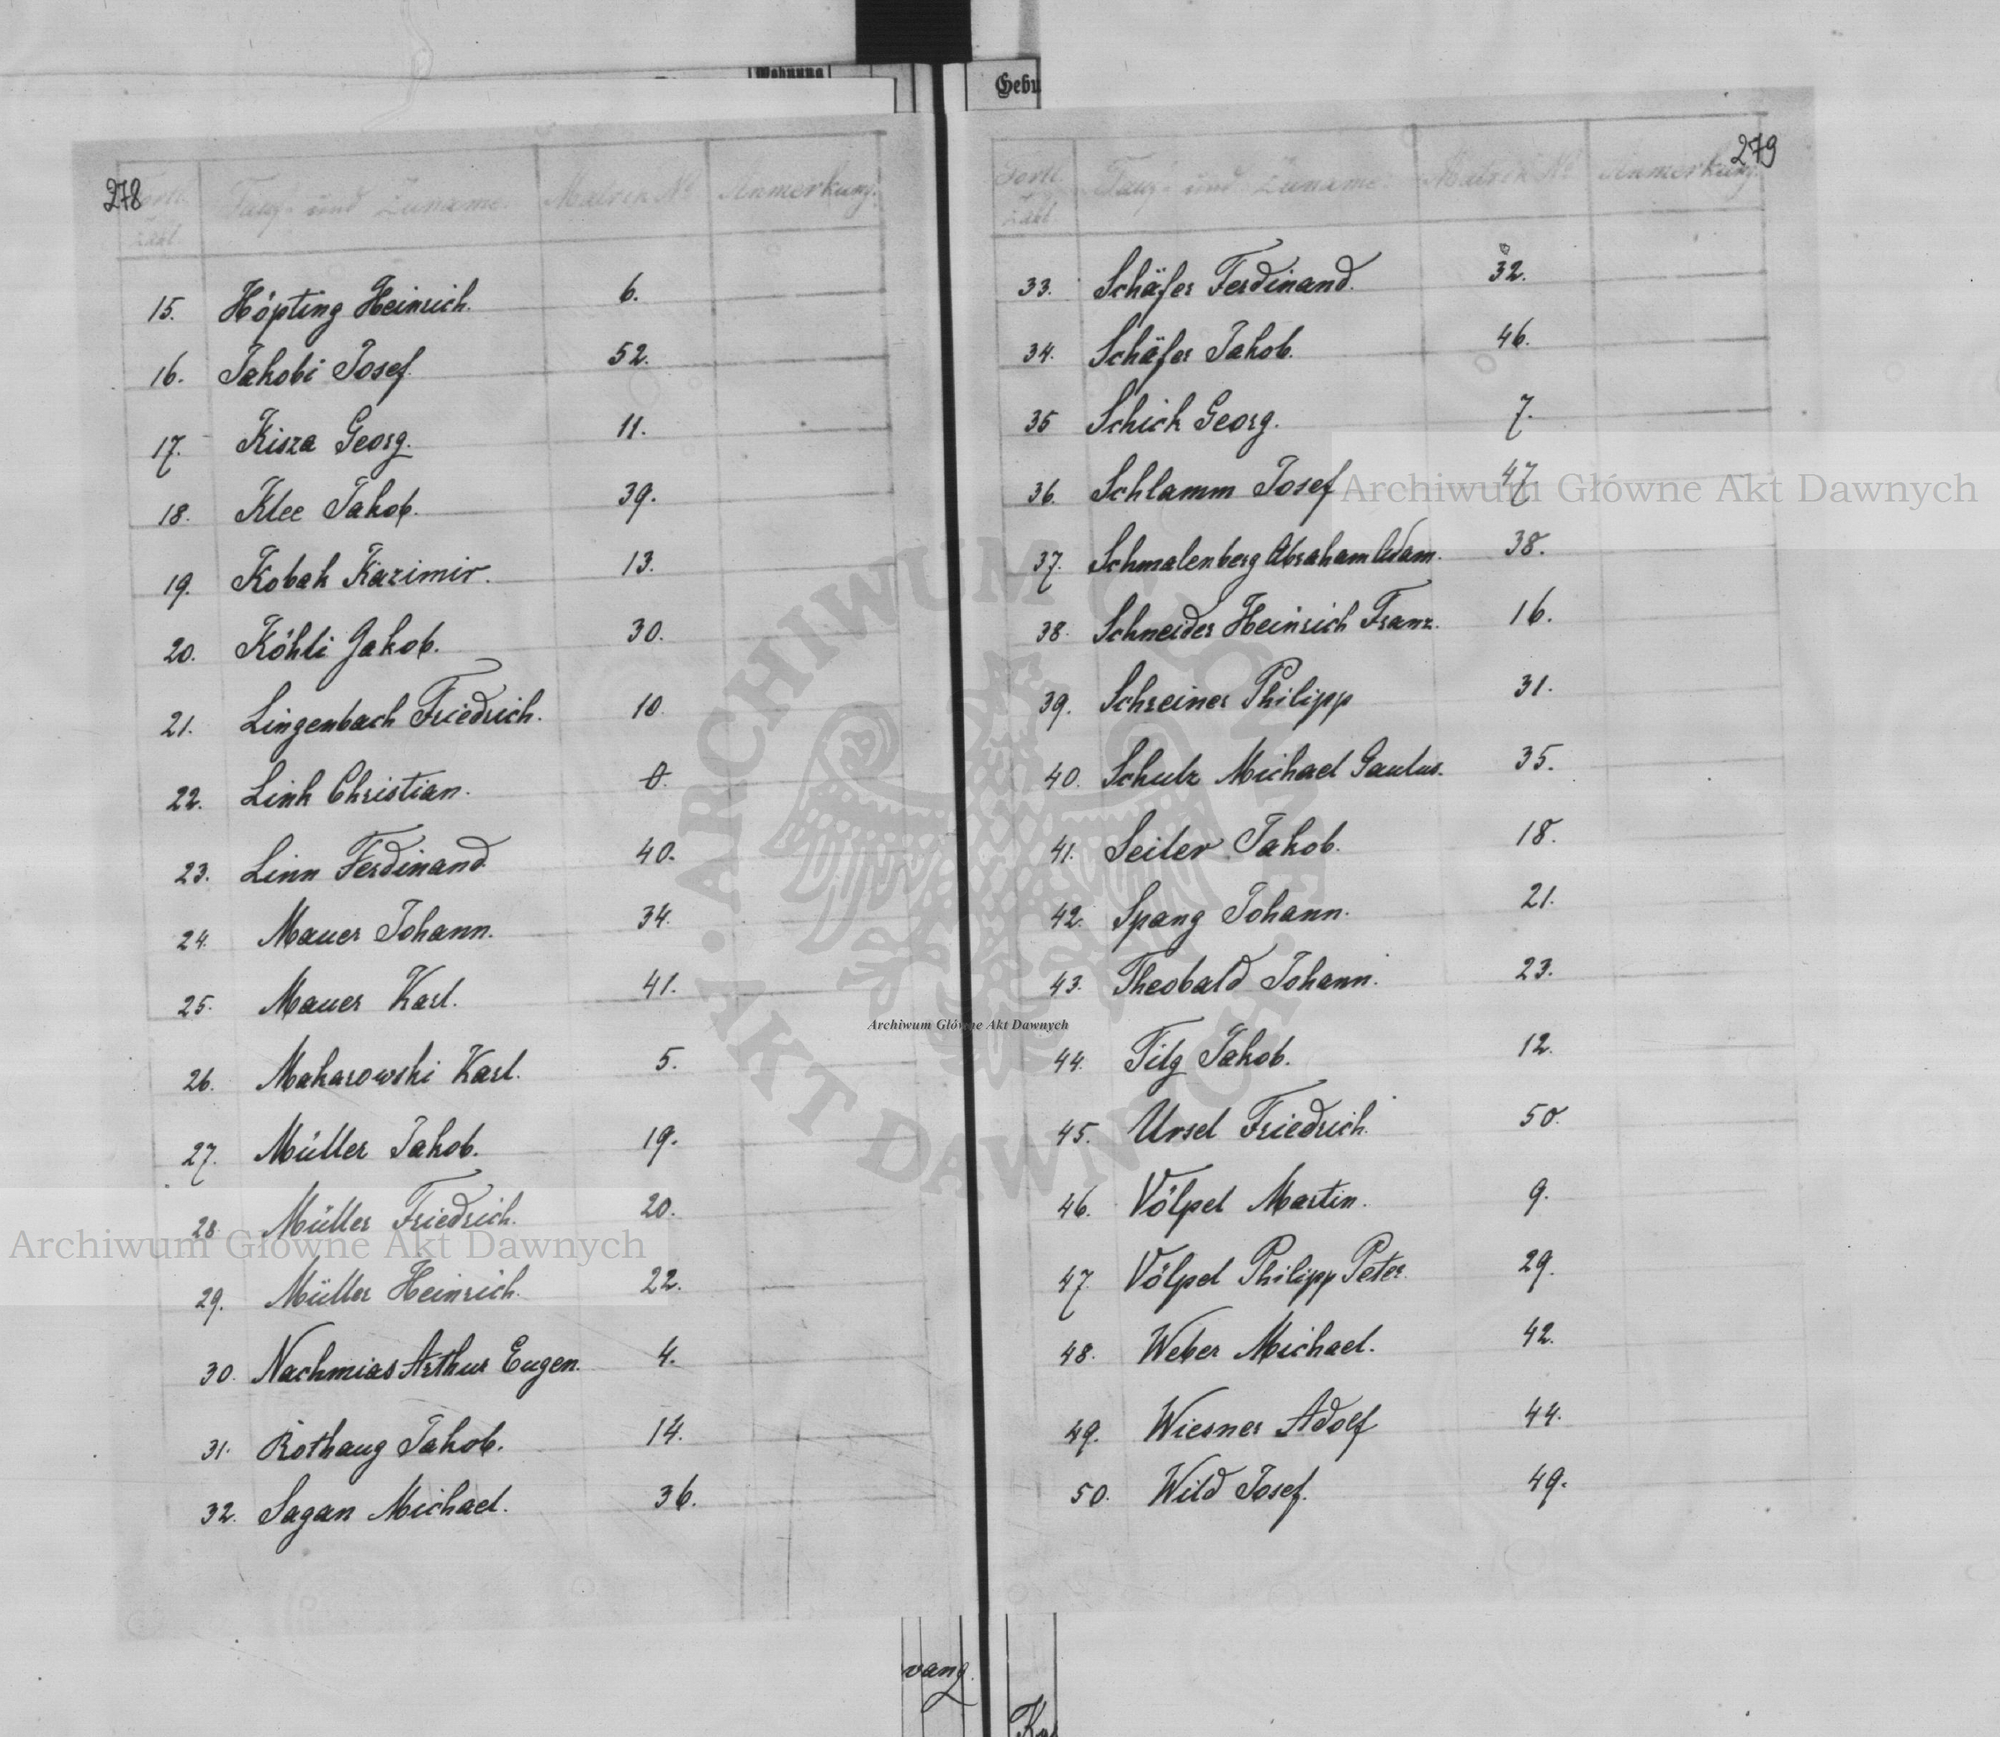 Wohnung
Gebu
278
Fortl. Zahl. Tauf- und Zuname. Matrik No Anmerkung.
15. Höpting Heinrich. 6.
16. Jakobi Josef. 52.
17. Kisza Georg. 11.
18. Klee Jakob. 39.
19. Kobak Kazimir. 13.
20. Köhli Jakob. 30.
21. Lingenbach Friedrich. 10.
22. Link Christian. 8.
23. Linn Ferdinand. 40.
24. Mauer Johann. 34.
25. Mauer Karl. 41.
26. Makarowski Karl. 5.
27. Müller Jakob. 19.
28. Müller Friedrich. 20.
29. Müller Heinrich. 22.
30. Nachmias Arthur Eugen. 4.
31. Rothaug Jakob. 14.
32. Sagan Michael. 36.
279
Fortl. Zahl. Tauf- und Zuname. Matrik No Anmerkung.
33. Schäfer Ferdinand. 32.
34. Schäfer Jakob. 46.
35 Schick Georg. 7.
36. Schlamm Josef 47
37. Schmalenberg Abraham Adam. 38.
38. Schneider Heinrich Franz. 16.
39. Schreiner Philipp 31.
40. Schulz Michael Paulus. 35.
41. Seiler Jakob. 18.
42. Spang Johann. 21.
43. Theobald Johann. 23.
44. Filg Jakob. 12.
45. Ursel Friedrich. 50.
46. Völpel Martin. 9.
47. Völpel Philipp Peter. 29.
48. Weber Michael. 42.
49. Wiesner Adolf 44.
50. Wild Josef. 49.
vang.
Archiwum Główne Akt Dawnych
Archiwum Główne Akt Dawnych
Archiwum Główne Akt Dawnych
ARCHIWUM GŁÓWNE
AKT DAWNYCH